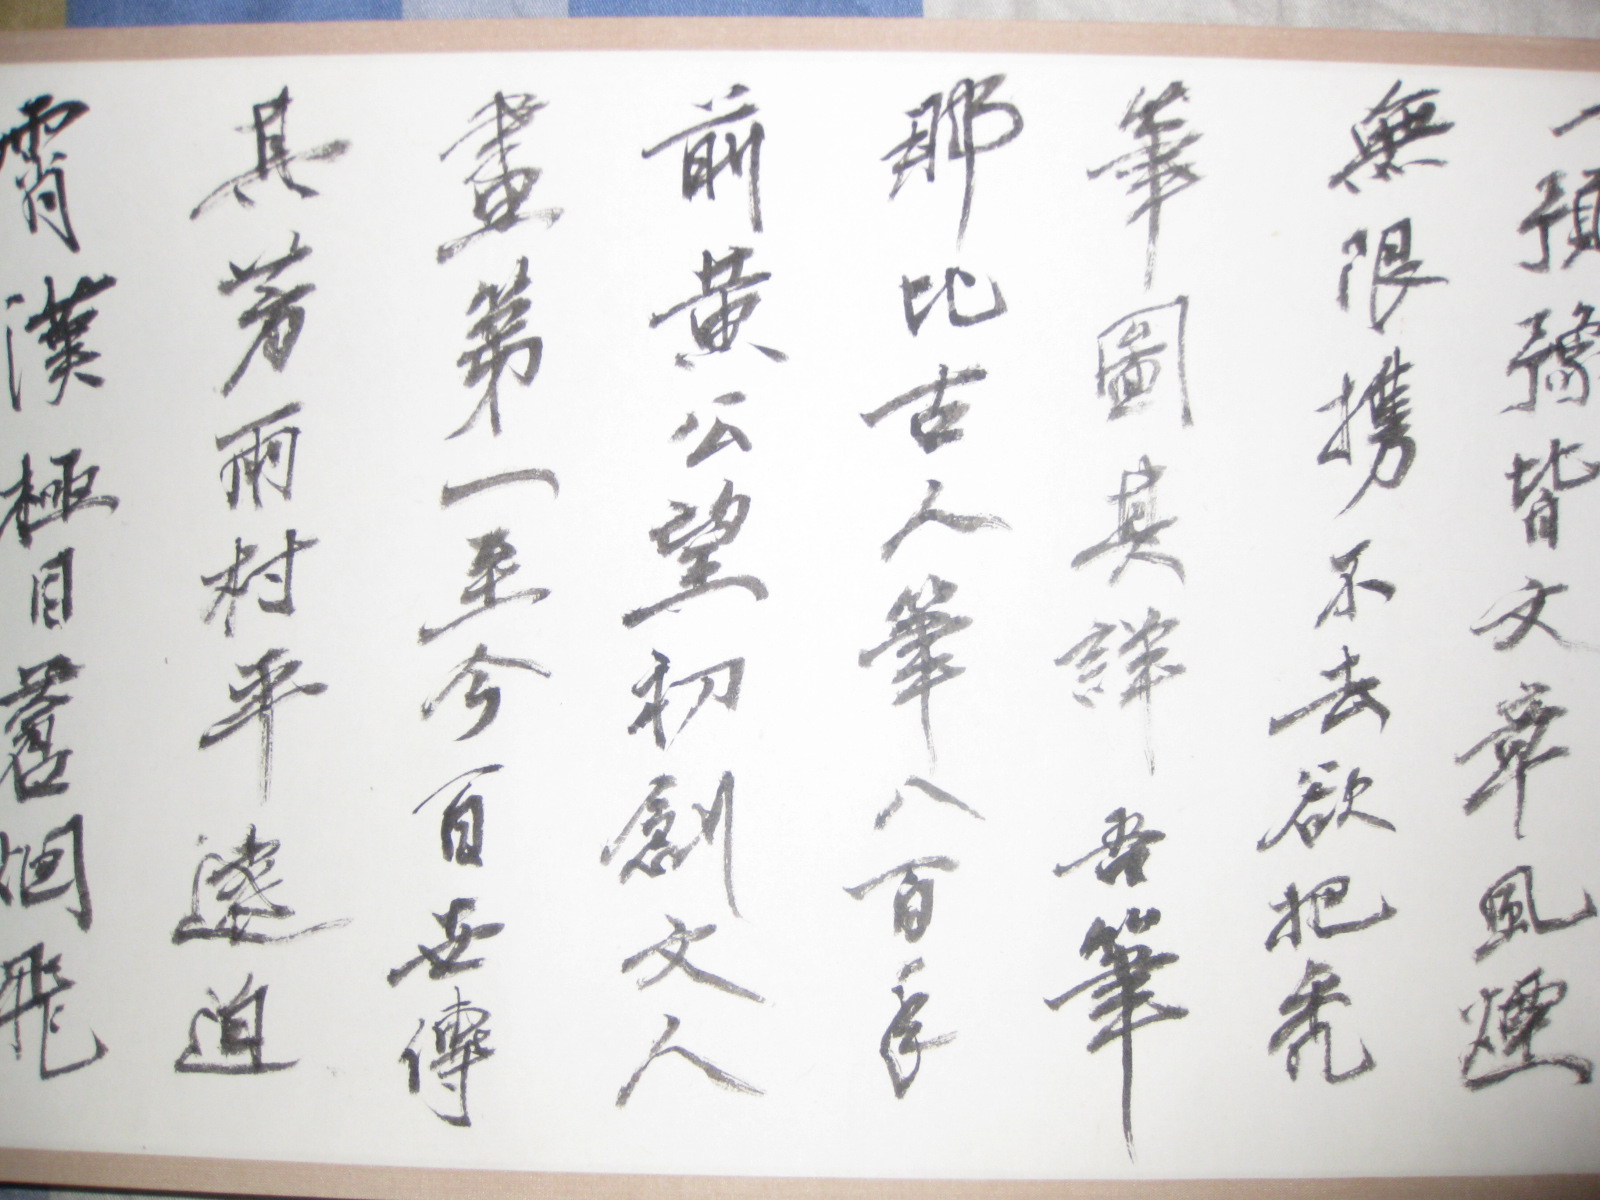 一預豫皆文章風煙
無限攜不去欲把禿
筆圖其詳吾筆
那比古人筆八百年
前黃公望初創文人
畫第一至今百世傳
其芳雨村平遠迫
霄漢極目蒼烟飛